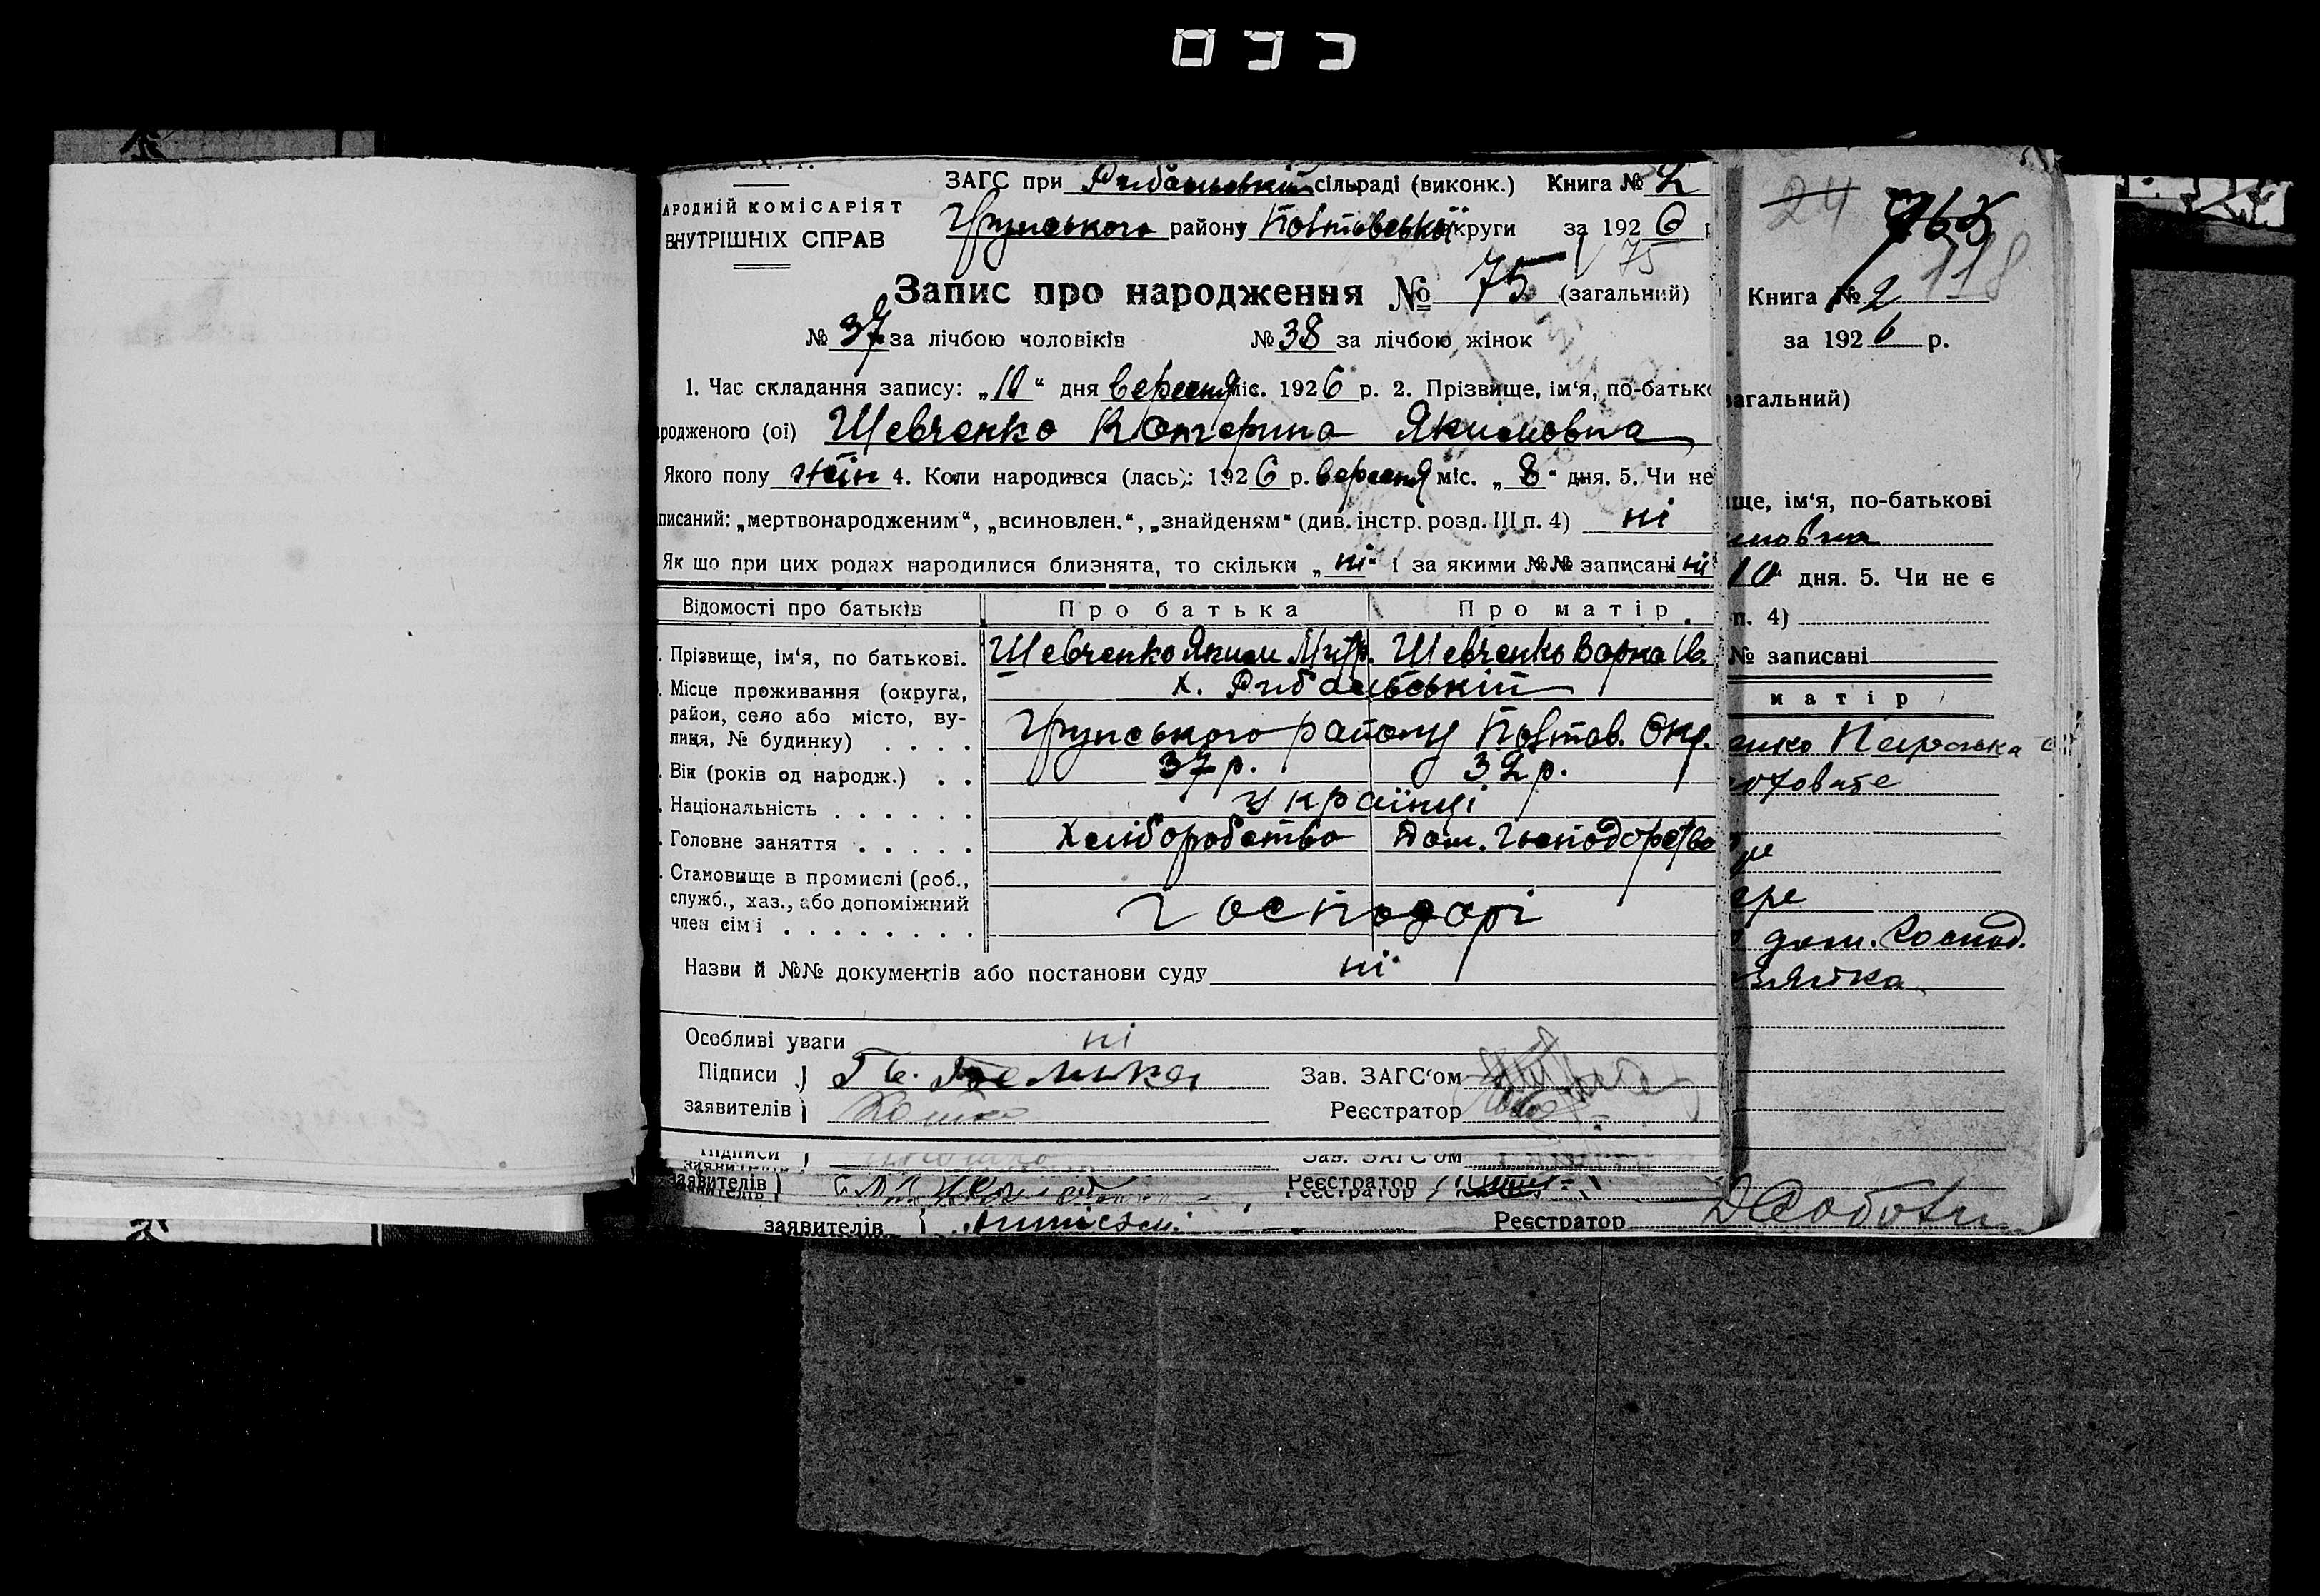 ЗАГС при Рибальській сільраді (виконк.) Книга № 2
АРОДНІЙ КОМІСАРІЯТ
ВНУТРІШНІХ СПРАВ
Грунського району Полтавської округи за 1926 р
75
Запис про народження № 75 (загальний)
№ 37 за лічбою чоловіків № 38 за лічбою жінок
1. Час складання запису: „10“ дня вересня міс. 1926 р. 2. Прізвище, ім‘я, по-батько
родженого (ої) Шевченко Катерина Якимовна
Якого полу жін 4. Коли народився (лась): 1926 р. вересня міс. „8“ дня. 5. Чи не
писаний: „мертвонародженим“, „всиновлен.“, „знайденям“ (див. інстр. розд. III п. 4) ні
Як що при цих родах народилися близнята, то скільки „ні“ і за якими №№ записані ні
Відомості про батьків Про батька Про матір.
Прізвище, ім‘я, по батькові. Шевченко Яким Митр. Шевченко Варка Ів.
Місце проживання (округа, х. Рибальській
район, село або місто, ву-
лиця, № будинку) . . . . Грунського району Полтав. Окр.
Вік (років од народж.) . . 37 р. 32 р.
Національність . . . . . . українці
Головне заняття . . . . . Хліборобство Дом. Господорство
Становище в промислі (роб.,
служб., хаз., або допоміжний Господорі
член сімї . . . . . . . .
Назви й №№ документів або постанови суду ні
Особливі уваги ні
Підписи
заявителів
Зав. ЗАГС‘ом
Реєстратор
Підписи Зав. ЗАГС‘ом
заявителів Реєстратор
Реєстратор
заявителів Реєстратор
24 765
118
Книга № 2
за 1926 р.
загальний)
ище, ім‘я, по-батькові
мовна
10“ дня. 5. Чи не є
п. 4)
№ записані
матір
енко
гре
дом. Господ.